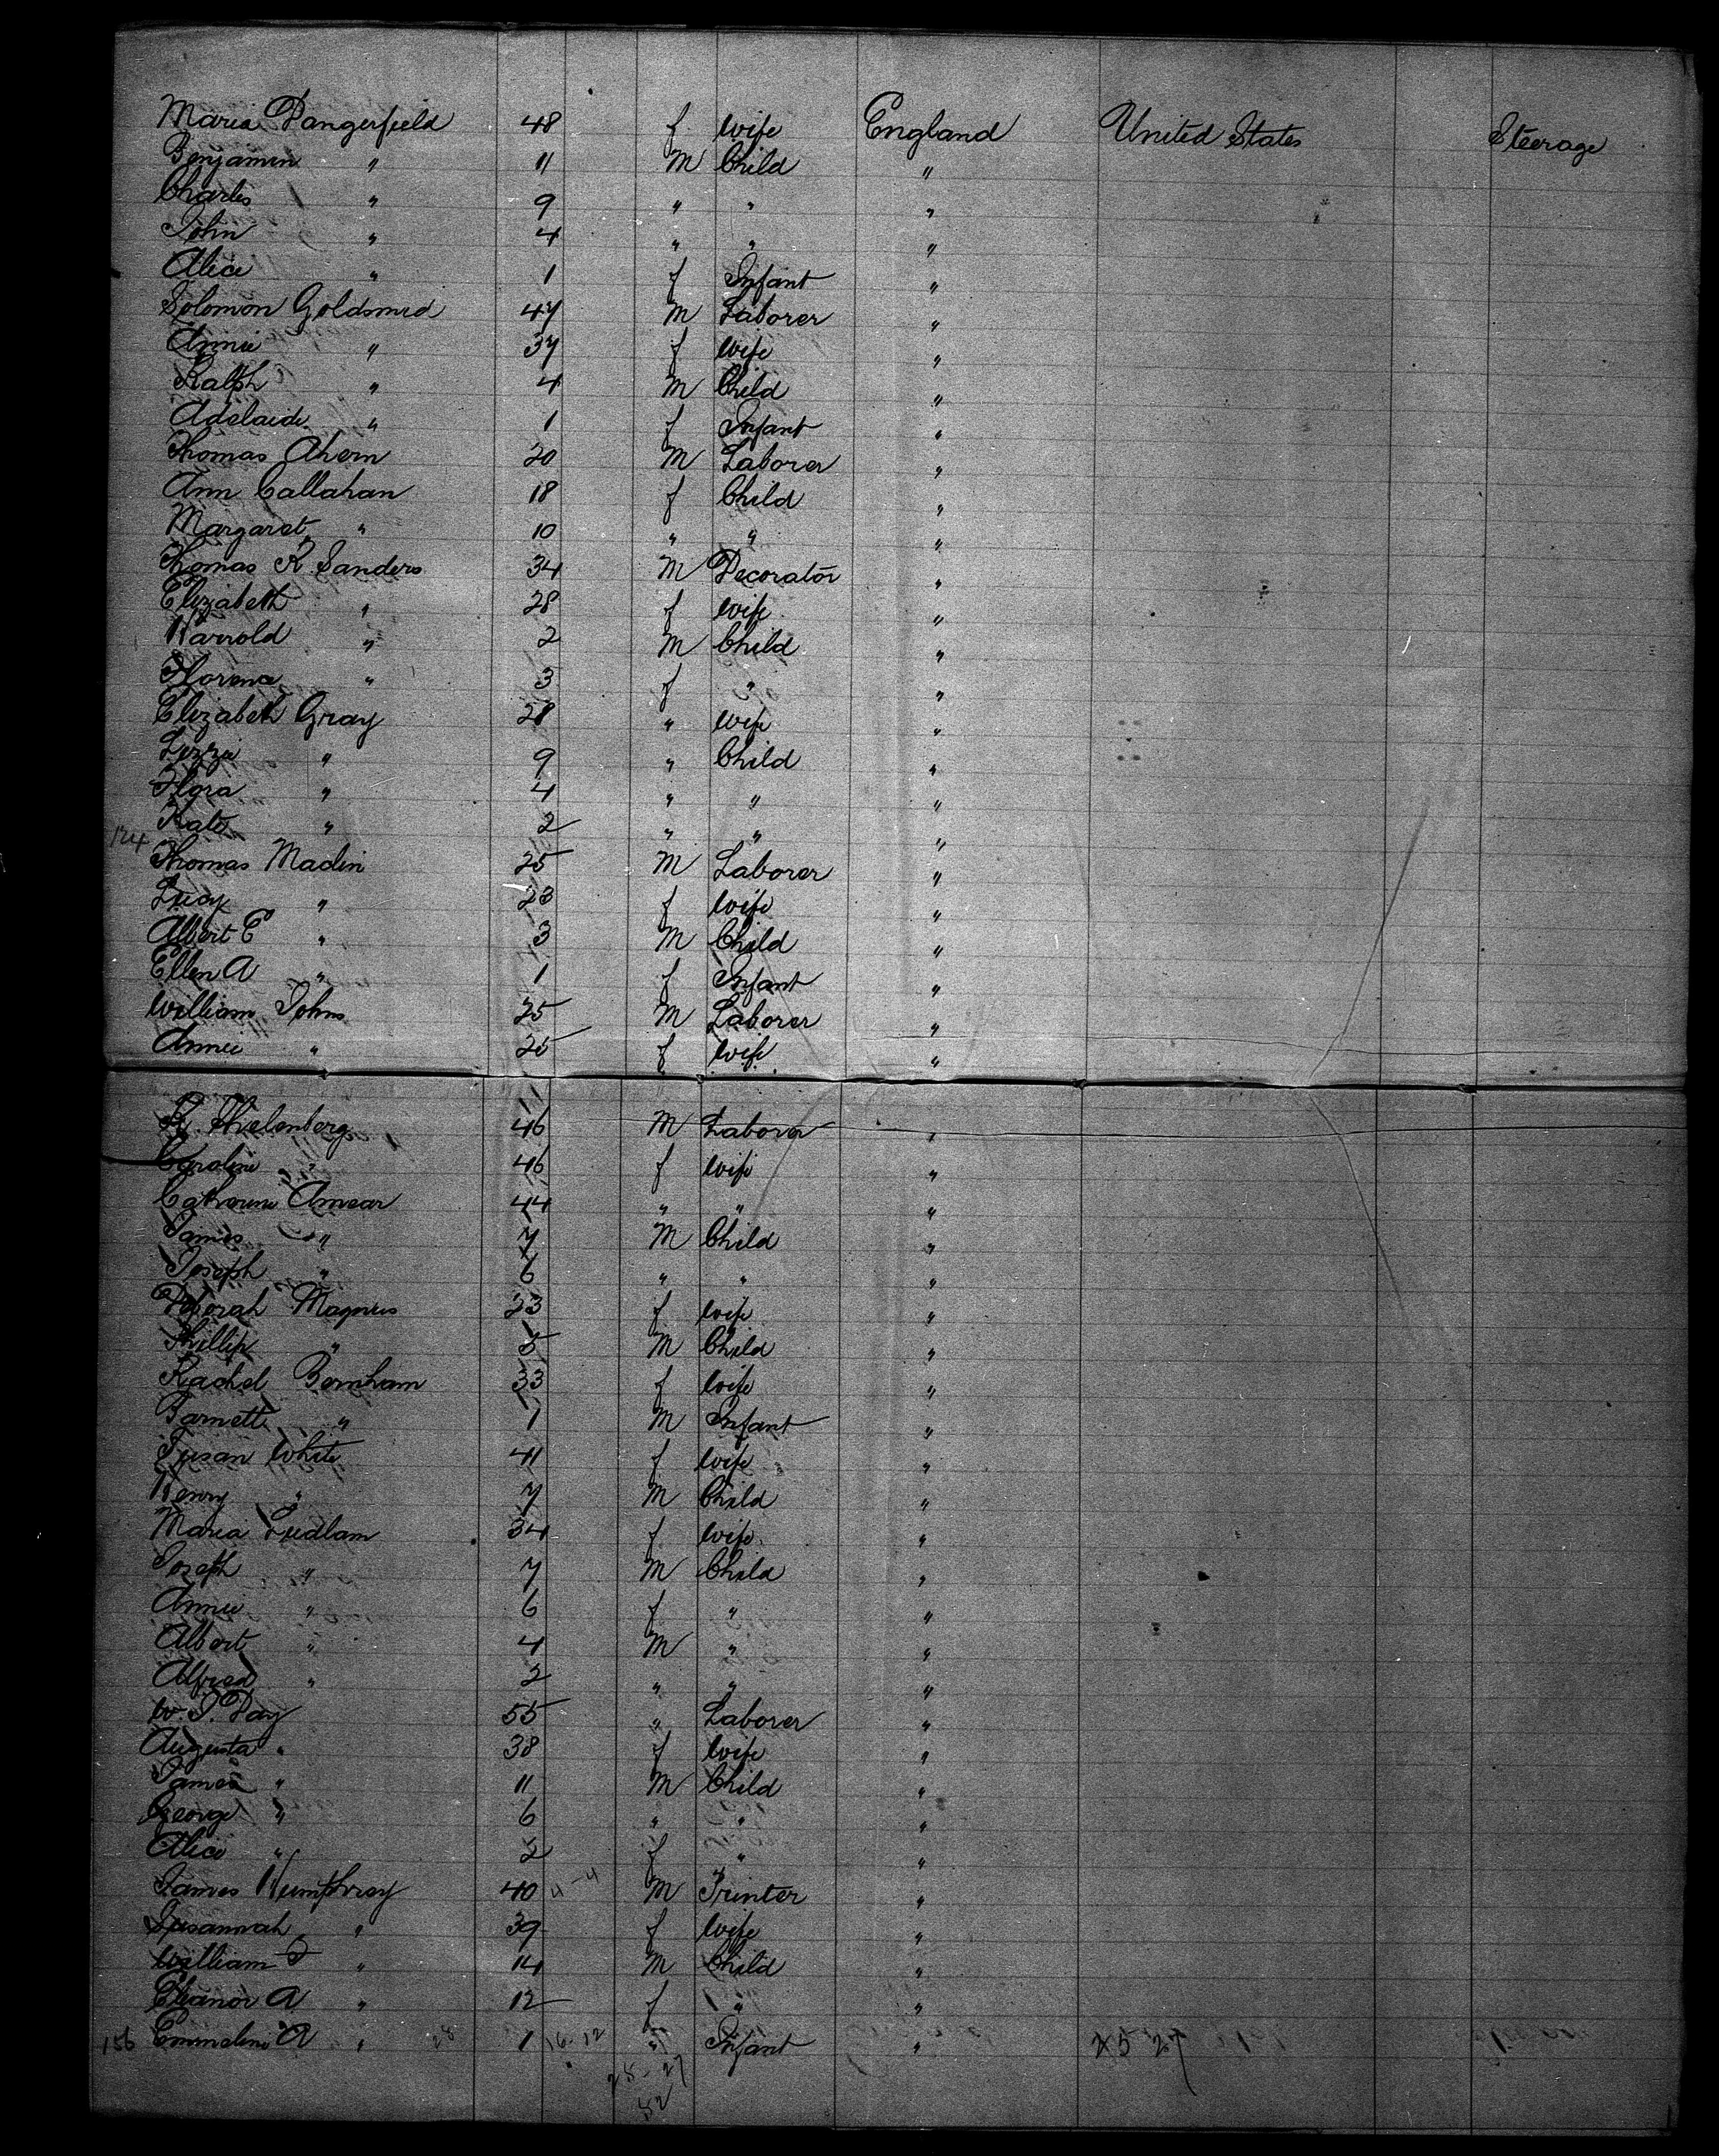 Maria Dangerfield 48 f. wife England United States Steerage
Benjamin " 11 M Child "
Charles " 9 " " "
John " 4 " " "
Alice " 1 f Infant "
Solomon Goldsmid 47 M Laborer "
Annie " 37 f wife "
Ralph " 4 M Child "
Adelaide " 1 f Infant "
Thomas Ahern 20 M Laborer "
Ann Callahan 18 f Child "
Margaret " 10 " " "
Thomas R Sanders 34 M Decorator "
Elizabeth " 28 f wife "
Harrold " 2 M Child "
Florence " 3 f " "
Elizabeth Gray 28 " wife "
Lizzie " 9 " Child "
Flora " 4 " " "
Kate " 2 " " "
124
Thomas Madin 25 M Laborer "
Lucy " 23 f wife "
Albert E " 3 M Child "
Ellen A " 1 f Infant "
William Johns 25 M Laborer "
Annie " 25 f wife "
R. Thelenberg 46 M Laborer "
Caroline " 46 f wife "
Catherine Anvear 44 " " "
James " 7 M Child "
Joseph " 6 " " "
Deborah Magnus 23 f wife "
Phillip " 5 M Child "
Rachel Bernham 33 f wife "
Barnett " 1 M Infant "
Susan White 41 f wife "
Henry " 7 M Child "
Maria Ludlam 34 f wife "
Joseph " 7 M Child "
Annie " 6 f " "
Albert " 4 M " "
Alfred " 2 " " "
W. J. Day 55 " Laborer "
Augusta " 38 f wife "
James " 11 M Child "
George " 6 " " "
Alice " 2 f " "
James Humphrey 40 4-4 M Printer "
Susannah " 39 f wife "
William J " 14 M Child "
Eleanor A " 12 f " "
156 Emmeline A " 28 1 16-12 " Infant " 25 27
25-27
52